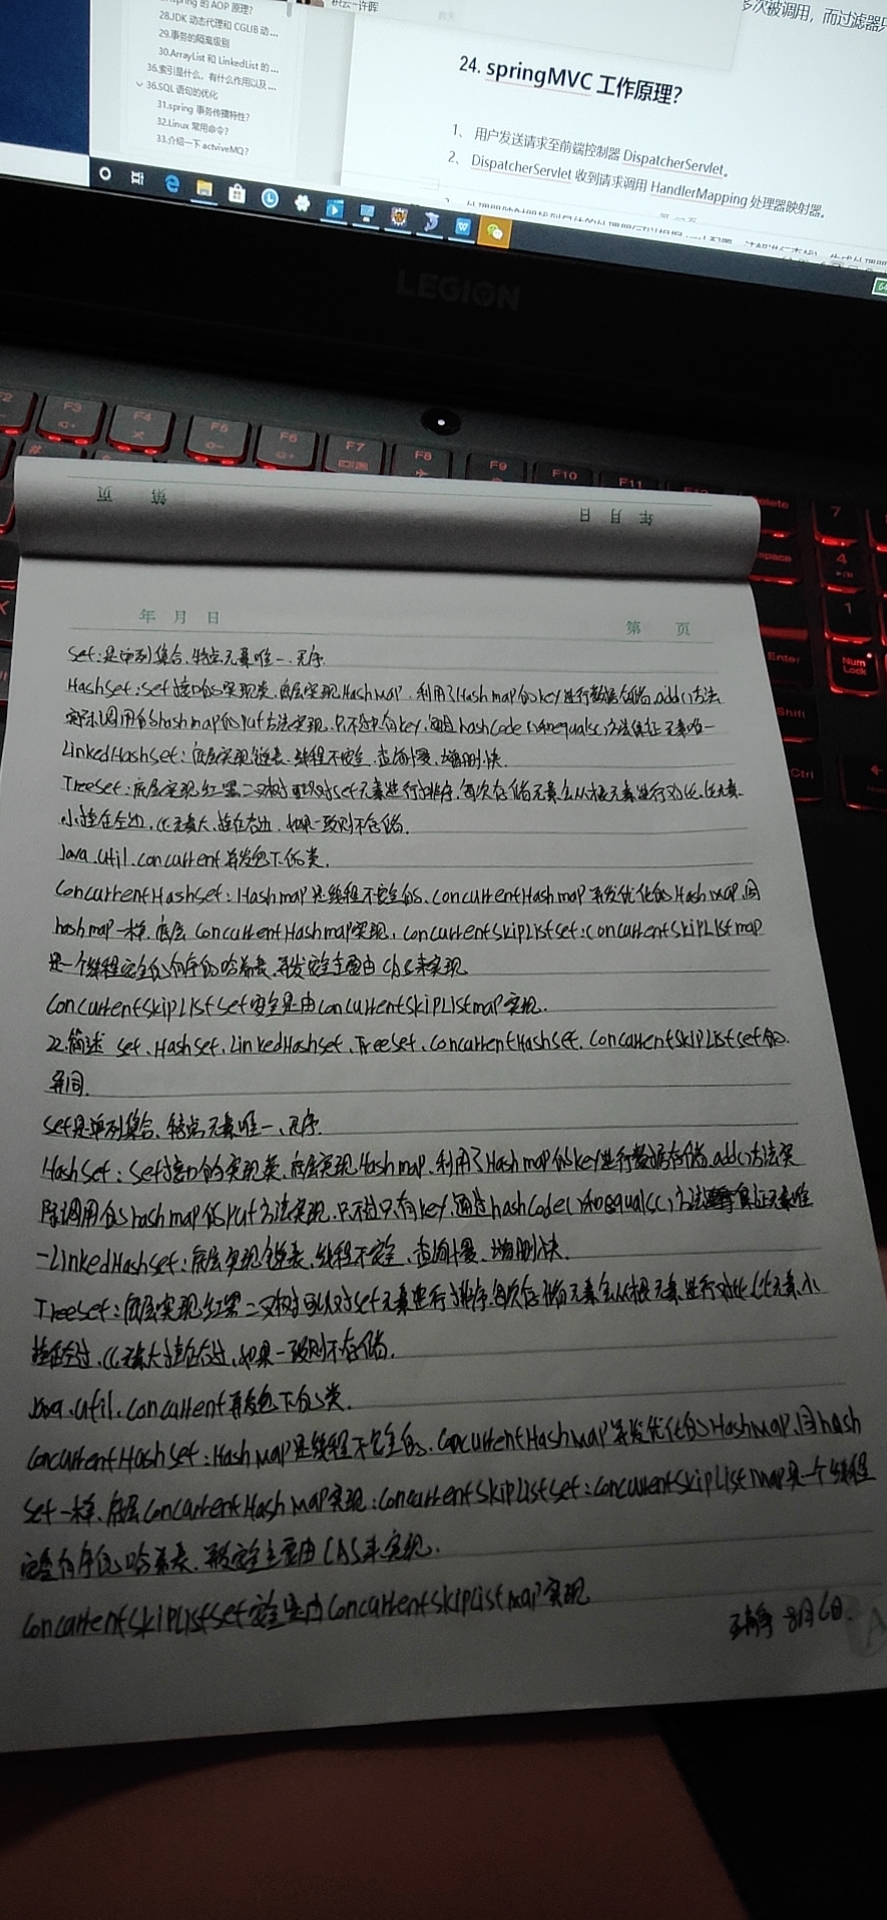 spring 的 AOP 原理?
28.JDK 动态代理和 CGLIB 动...
29.事务的隔离级别
30.ArrayList 和 LinkedList 的...
36.索引是什么,有什么作用以及...
36.SQL 语句的优化
31.spring 事务传播特性?
32.Linux 常用命令?
33.介绍一下 actviveMQ?
多次被调用,而过滤器只
24. springMVC 工作原理?
1、 用户发送请求至前端控制器 DispatcherServlet。
2、 DispatcherServlet 收到请求调用 HandlerMapping 处理器映射器。
LEGION
F3 F4 F5 F6 F7 F8 F9 F10 F11
7
4
1
Enter
Num Lock
Shift
Ctrl
第 页
年 月 日
年 月 日 第 页
Set:是单列集合、特点元素唯一、无序
HashSet:Set接口的实现类、底层实现HashMap、利用了Hashmap的key进行数据存储、add()方法
实际调用的hashmap的put方法实现、只不过只有key、通过hashCode()和equals()方法保证元素唯一
LinkedHashSet:底层实现链表、线程不安全、查询慢、增删快.
TreeSet:底层实现红黑二叉树可以对set元素进行排序、每次存储元素会从根元素进行对比、比元素
小挂在左边、比元素大、挂在右边、如果一致则不存储.
Java.util.concurrent并发包下的类.
ConcurrentHashSet:Hashmap是线程不安全的、ConcurrentHashmap并发优化的Hashmap、同
hashmap一样、底层ConcurrentHashmap实现、ConcurrentSkipListSet:ConcurrentSkipListmap
是一个线程安全的有序的哈希表、并发安全主要由CAS来实现
ConcurrentSkipListSet安全是由ConcurrentSkipListmap实现.
22.简述 set、HashSet、LinkedHashset、TreeSet、ConcurrentHashSet、ConcurrentSkipListset的
异同.
Set是单列集合、特点元素唯一、无序.
HashSet:Set接口的实现类、底层实现Hashmap、利用了Hashmap的key进行数据存储、add()方法实
际调用的hashmap的put方法实现、只不过只有key、通过hashCode()和equals()方法保证元素唯
一LinkedHashset:底层实现链表、线程不安全、查询慢、增删快.
Treeset:底层实现红黑二叉树可以对set元素进行排序、每次存储元素会从根元素进行对比、比元素小
挂在左边、比元素大挂在右边、如果一致则不存储.
Java.util.concurrent并发包下的类.
ConcurrentHashSet:HashMap是线程不安全的、ConcurrentHashMap并发优化的HashMap、同hash
set一样、底层ConcurrentHashMap实现:ConcurrentSkipListset:ConcurrentSkipListmap是一个线程
安全有序的哈希表、并发安全主要由CAS来实现.
ConcurrentSkipListSet安全是由ConcurrentSkipListmap实现
8月6日.